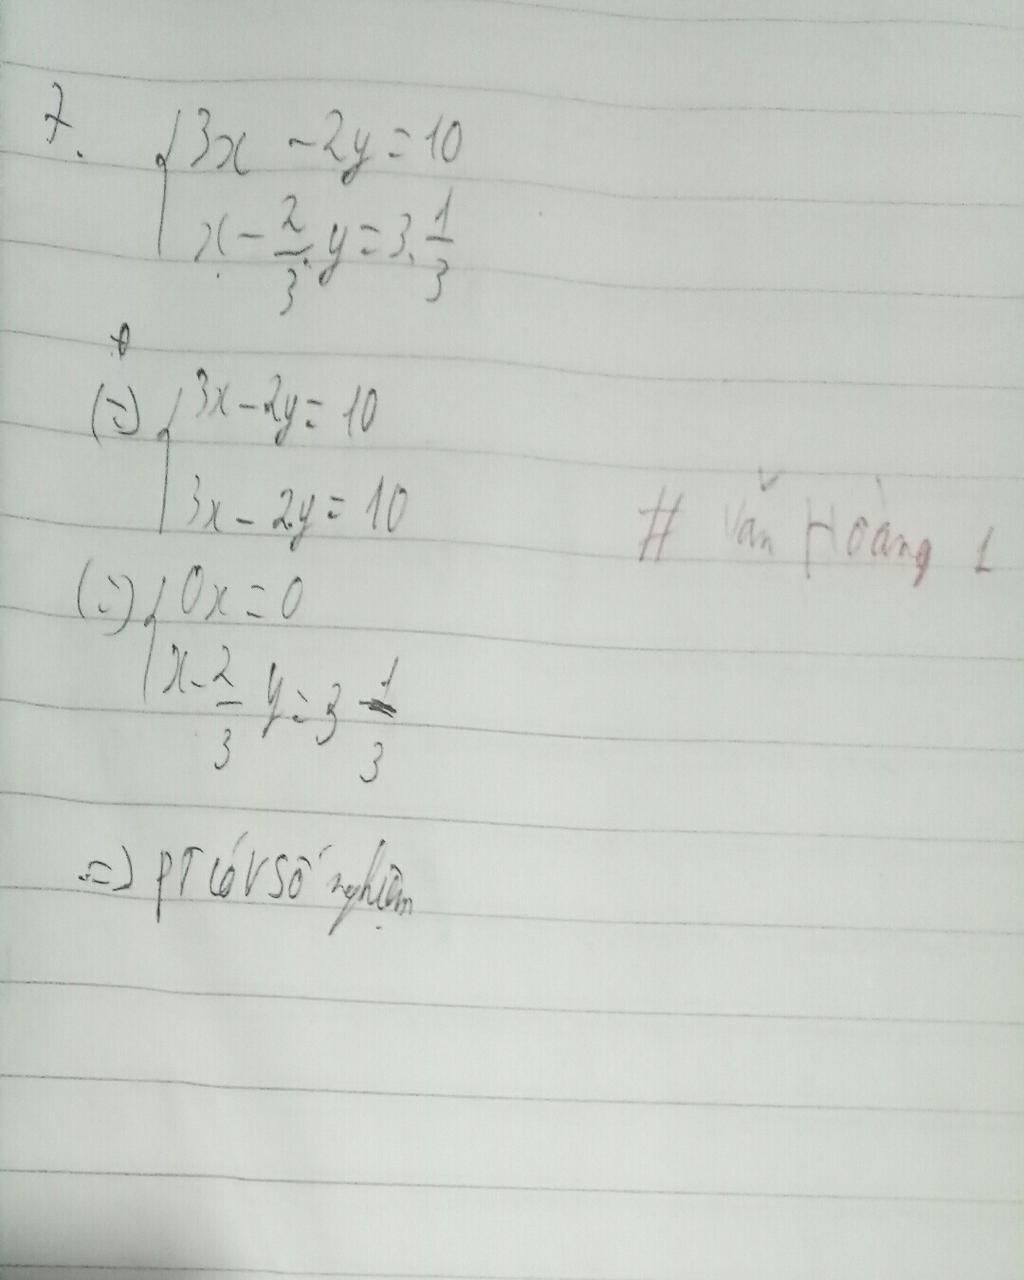 7. { 3x - 2y = 10
x - 2/3 y = 3. 1/3
(=) { 3x - 2y = 10
3x - 2y = 10
# Văn Hoàng 1
(=) { 0x = 0
x - 2/3 y = 3 1/3
=) PT có V Số nghiệm